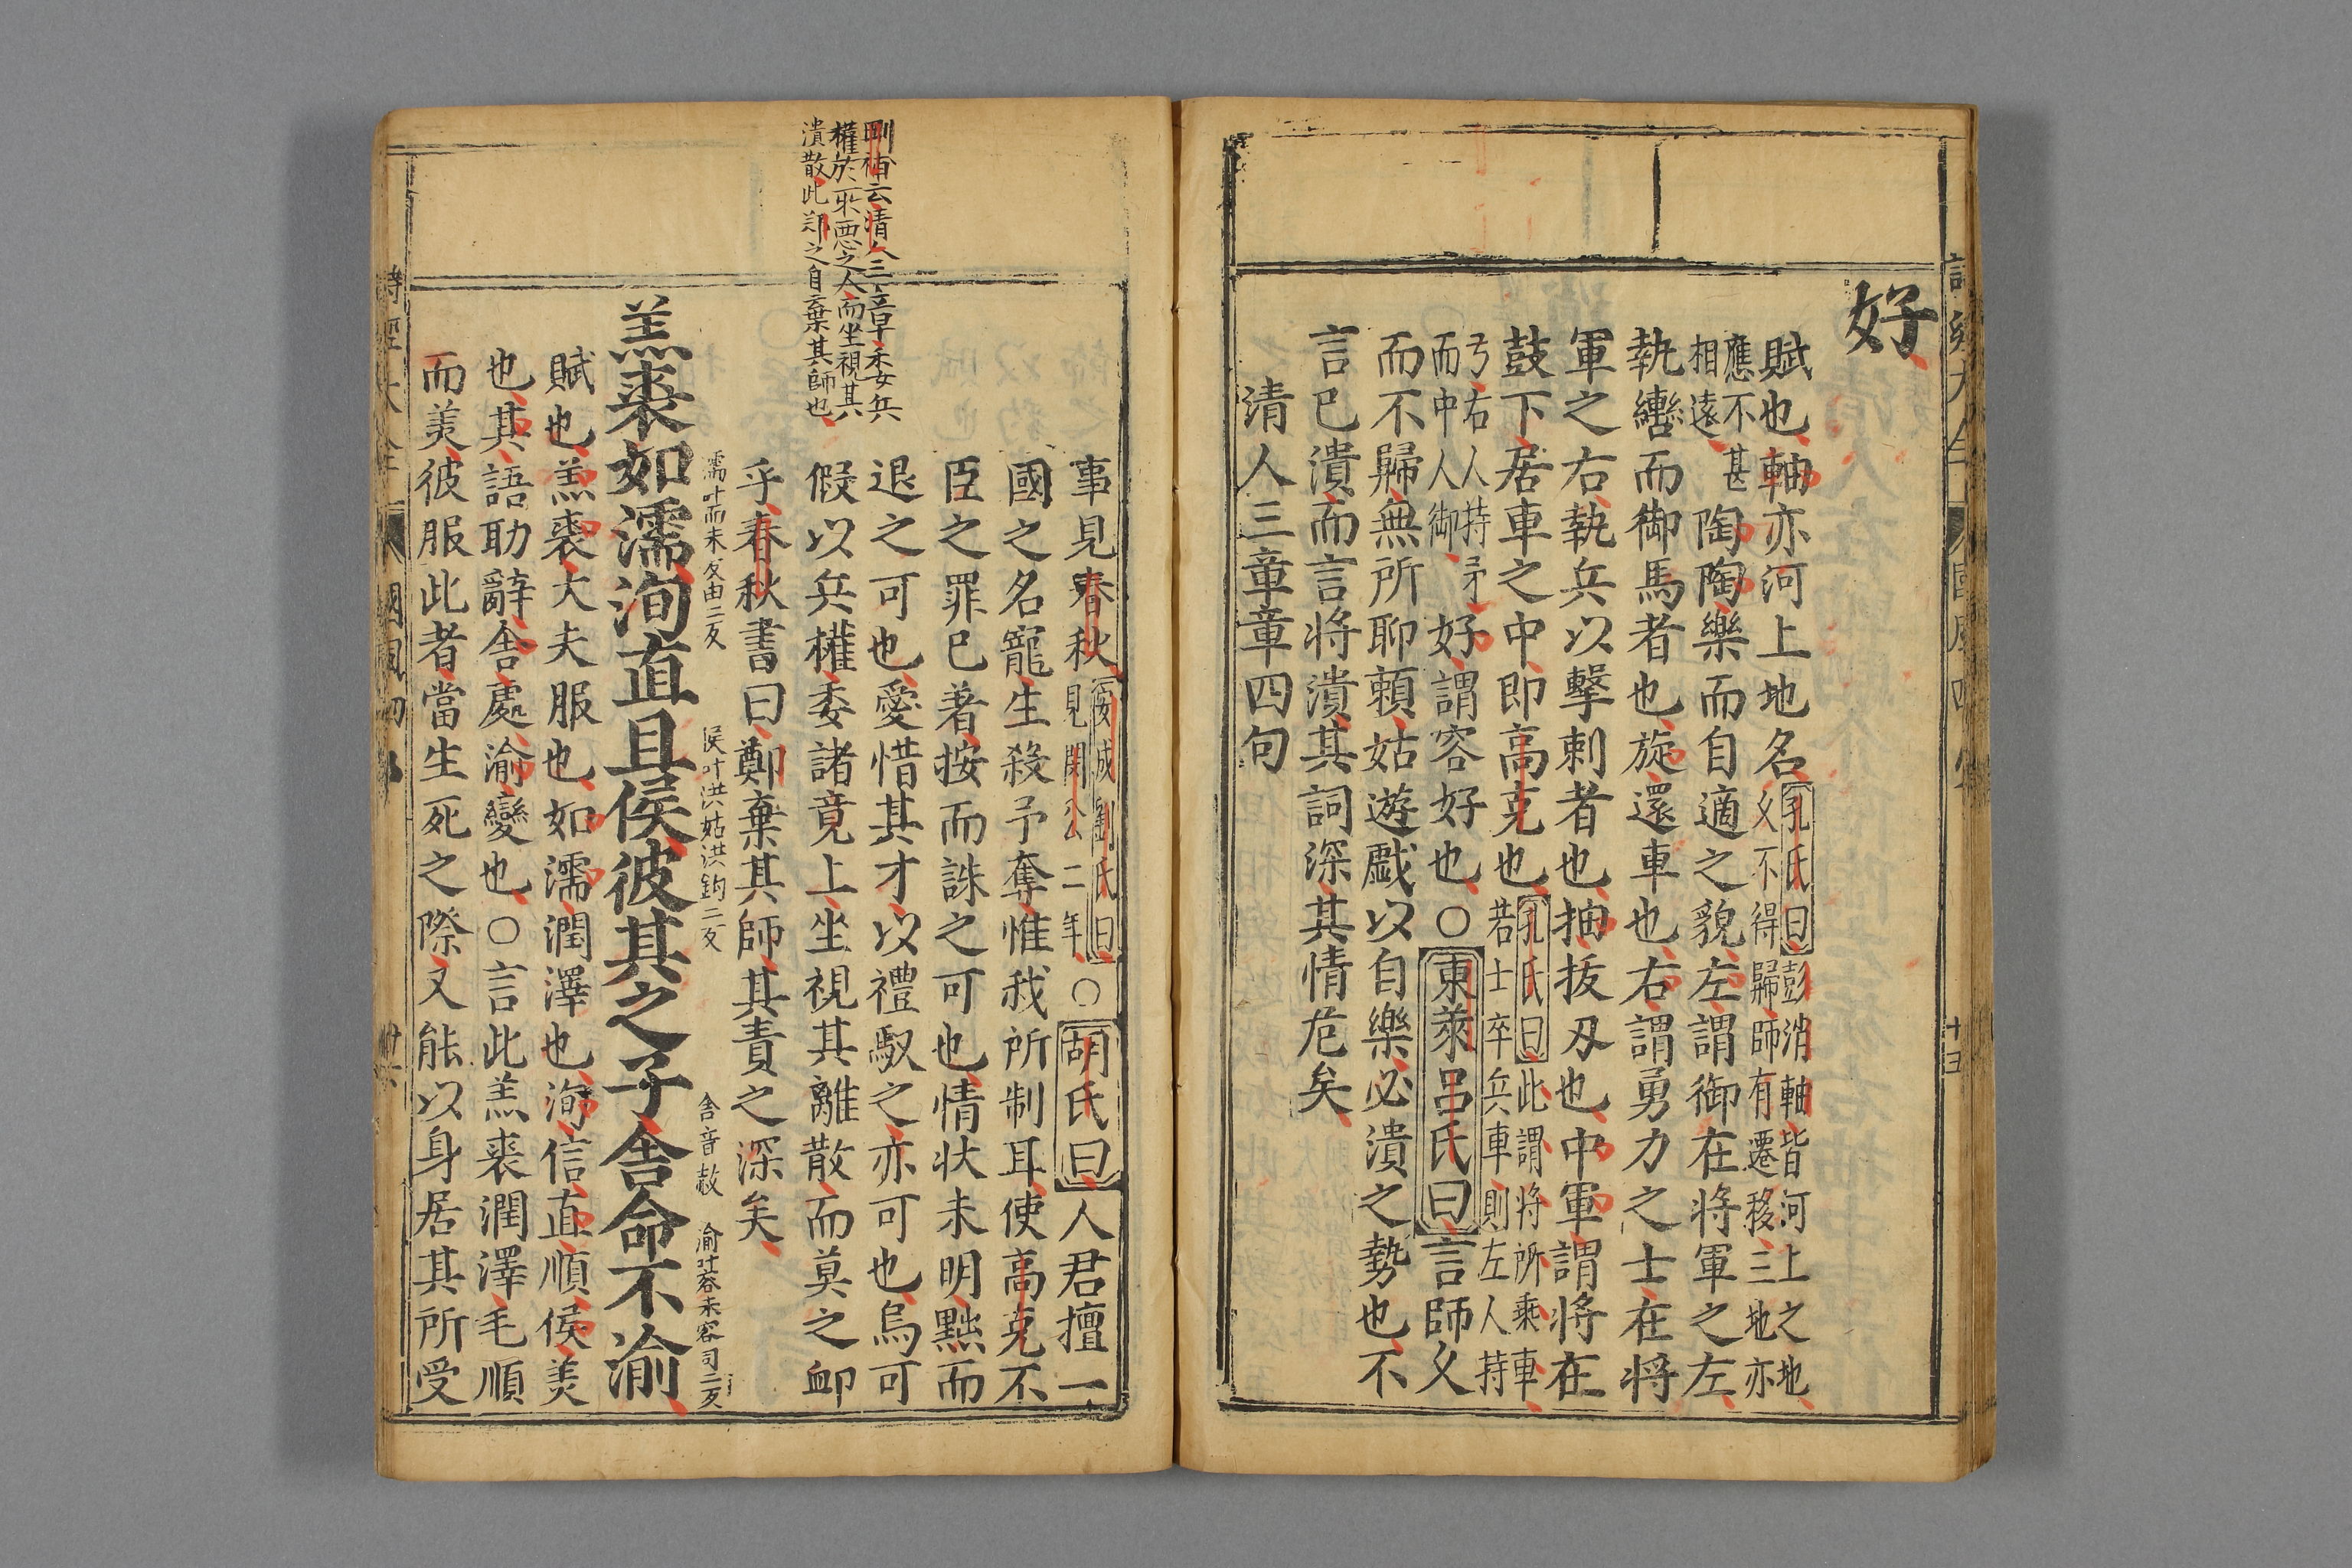 好
賦也軸亦河上地名孔氏曰彭消軸皆河上之地久不得歸師有遷移三地亦
應不甚相遠陶陶樂而自適之貌左謂御在將軍之左
執轡而御馬者也旋還車也右謂勇力之士在將
軍之右執兵以擊刺者也抽拔刃也中軍謂將在
鼓下居車之中即高克也孔氏曰此謂將所乘車若士卒兵車則左人持
弓右人持矛而中人御好謂容好也〇東萊呂氏曰言師久
而不歸無所聊頼姑遊戯以自樂必潰之勢也不
言已潰而言将潰其詞深其情危矣
清人三章章四句
事見春秋安成劉氏曰見閔公二年〇胡氏曰人君擅一
國之名寵生殺予奪惟我所制耳使高克不
臣之罪已著按而誅之可也情状未明黜而
退之可也愛惜其才以禮馭之亦可也烏可
假以兵權委諸竟上坐視其離散而莫之卹
乎春秋書曰鄭棄其師其責之深矣
云清人三章委兵
權於所惡之人而坐視其
潰散此郑之自棄其師也
羔裘如濡洵直且侯彼其之子舍命不渝
濡叶而朱而由二反 侯叶洪姑洪鉤二反 舍音赦 渝叶容朱容周二反
賦也羔裘大夫服也如濡潤澤也洵信直順侯美
也其語助辭舍處渝變也〇言此羔裘潤澤毛順
而美彼服此者當生死之際又能以身居其所受
詩經大全 國風四